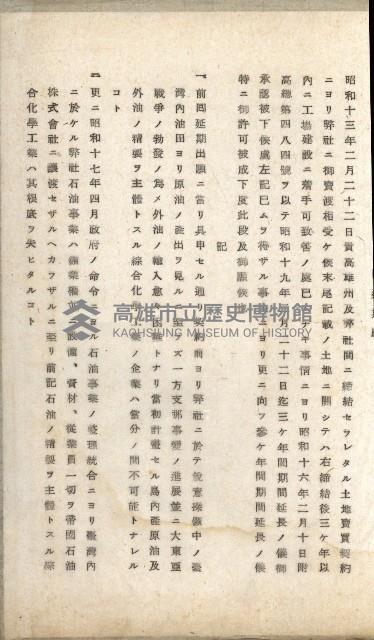 昭和十三年二月二十二日貴高雄州及弊社間ニ締結セラレタル土地賣買契約
ニヨリ弊社ニ御賣渡相受ケ候末尾記載ノ土地ニ關シテハ右締結後三ケ年以
內ニ工場建設ニ着手可致筈ノ處已ムナキ事情ニヨリ昭和十六年二月十日附
高總第四八四號ヲ以テ昭和十九年二月二十二日迄三ケ年間期間延長ノ儀御
承認被下候處左記已ムヲ得ザル事情ニヨリ更ニ向フ參ケ年間期間延長ノ儀
特ニ御許可被成下度此段及御願候也
記
一、前回延期出願ニ當リ具申セル通リ契約前ヨリ弊社ニ於テ銳意探鑛中ノ臺
灣內油田ヨリ原油ノ產出ヲ見ルニ至ラズ一方支那事變ノ進展並ニ大東亞
戰爭ノ勃發ノ爲メ外油ノ輸入愈々困難トナリ當初計畫セル島內產原油及
外油ノ精製ヲ主體トスル綜合化學工業ノ企業ハ當分ノ間不可能トナレル
コト
二、更ニ昭和十七年四月政府ノ命令ニヨル石油事業ノ整理統合ニヨリ臺灣內
ニ於ケル弊社石油事業ハ鑛業權、設備、資材、從業員一切ヲ帝國石油
株式會社ニ讓渡セザルヘカラザルニ至リ前記石油ノ精製ヲ主體トスル綜
合化學工業ハ其根底ヲ失ヒタルコト
高雄市立歷史博物館
KAOHSIUNG MUSEUM OF HISTORY